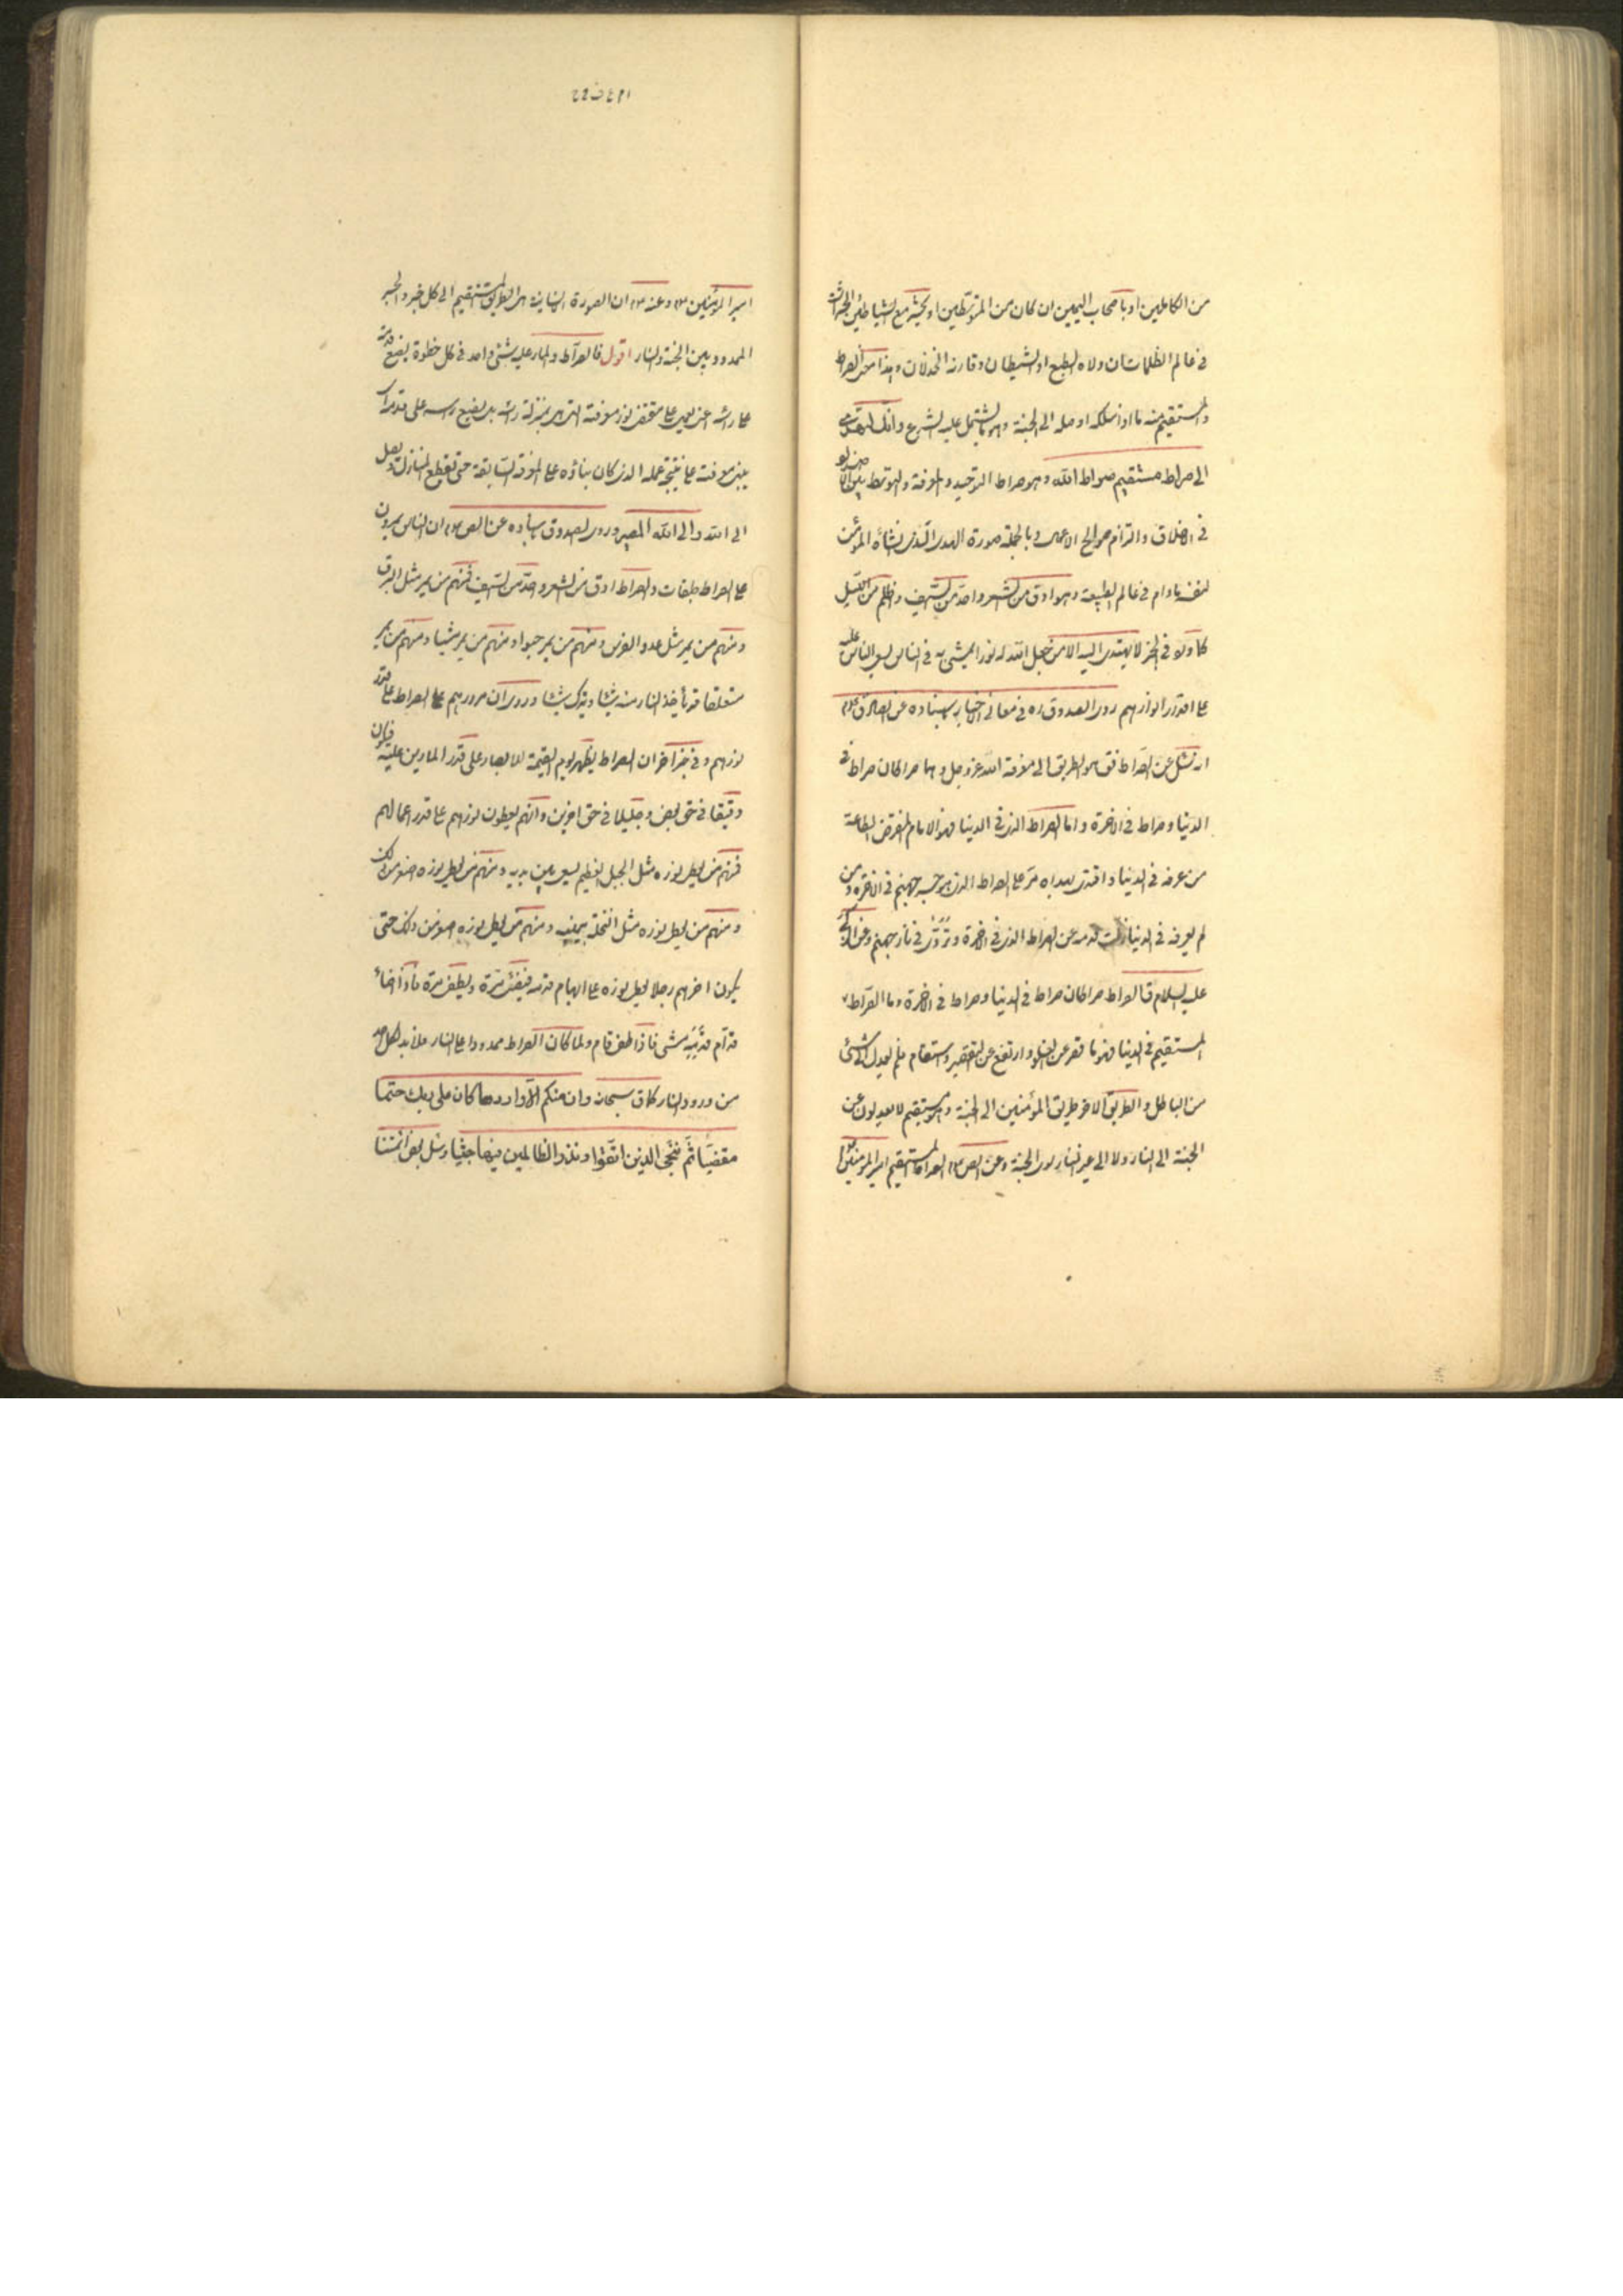 من الكاملين او باصحاب اليمين ان كان من المتوسطين او يحشر مع الشياطين والحشرات
فى عالم الظلمات ان ولاه الطبع او الشيطان وقارنه الخذلان وهذا معنى الصراط
والمستقيم منه ما اذا سلكه اوصله الى الجنة وهو ما يشتمل عليه الشرع وانك لتهدى
الى صراط مستقيم صراط الله وهو صراط التوحيد والمعرفة والتوسط بين الاضداد
فى الاخلاق والتزام صوالح الاعمال وبالجملة صورة الهدى الذى انشأه المؤمن
لنفسه مادام فى عالم الطبيعة وهو ادق من الشعر واحد من السيف واظلم من الليل
لا يهتدى اليه الا من جعل الله له نورا يمشى به فى الناس يسعى الناس عليه
على اقدار انوارهم روى الصدوق ره فى معانى الاخبار باسناده عن الصادق ع
انه سئل عن الصراط فق هو الطريق الى معرفة الله عز وجل وهما صراطان صراط فى
الدنيا وصراط فى الاخرة واما الصراط الذى فى الدنيا فهو الامام المفترض الطاعة
من عرفه فى الدنيا واقتدى بهداه مر على الصراط الذى هو جسر جهنم فى الاخرة ومن
لم يعرفه فى الدنيا زلت قدمه عن الصراط الذى فى الاخرة وتردى فى نار جهنم وعن
عليه السلام ق الصراط صراطان صراط فى الدنيا وصراط فى الاخرة وما الصراط
المستقيم فى الدنيا فهو ما قصر عن الغلو وارتفع عن التقصير واستقام فلم يعدل الى شئ
من الباطل والطريق الاخر طريق المؤمنين الى الجنة وهو مستقيم لا يعدلون عن
الجنة الى النار ولا الى غير النار سوى الجنة وعن الص ع الصراط المستقيم امير المؤمنين
امير المؤمنين ع وعنه ع ان الصورة الانسانية هى الطريق المستقيم الى كل خير والجسر
الممدود بين الجنة والنار اقول فالصراط والمار عليه شئ واحد فى كل خطوة يضع قدمه
على راسه اعنى يعمل على مقتضى نور معرفته التى هى بمنزلة راسه بل يضع راسه على قدمه اى
يبنى معرفته على نتيجة عمله الذى كان بناؤه على المعرفة السابقة حتى تقطع المنازل ويصل
الى الله والى الله المصير وروى الصدوق باسناده عن الص ع ان الناس يمرون
على الصراط طبقات والصراط ادق من الشعر واحد من السيف فمنهم من يمر مثل البرق
ومنهم من يمر مثل عدو الفرس ومنهم من يمر حبوا ومنهم من يمر مشيا ومنهم من يمر
متعلقا قد تأخذ النار منه شيئا وتترك شيئا وروى ان مرورهم على الصراط على قدر
نورهم وفى خبر اخر ان الصراط يظهر يوم القيمة للابصار على قدر المارين عليه فيكون
دقيقا فى حق بعض وجليلا فى حق اخرين وانهم يعطون نورهم على قدر اعمالهم
فمنهم من يعطى نوره مثل الجبل العظيم يسعى بين يديه ومنهم من يعطى نوره اصغر من ذلك
ومنهم من يعطى نوره مثل النخلة بيمينه ومنهم من يعطى نوره اصغر من ذلك حتى
يكون اخرهم رجلا يعطى نوره على ابهام قدمه فيضئ مرة ويطفى مرة فاذا اضاء
قدم قدميه مشى فاذا طفى قام ولما كان الصراط ممدودا على النار فلا بد لكل احد
من ورود النار كما ق سبحانه وان منكم الا واردها كان على ربك حتما
مقضيا ثم ننجى الذين اتقوا ونذر الظالمين فيها جثيا وسئل بعض ائمتنا